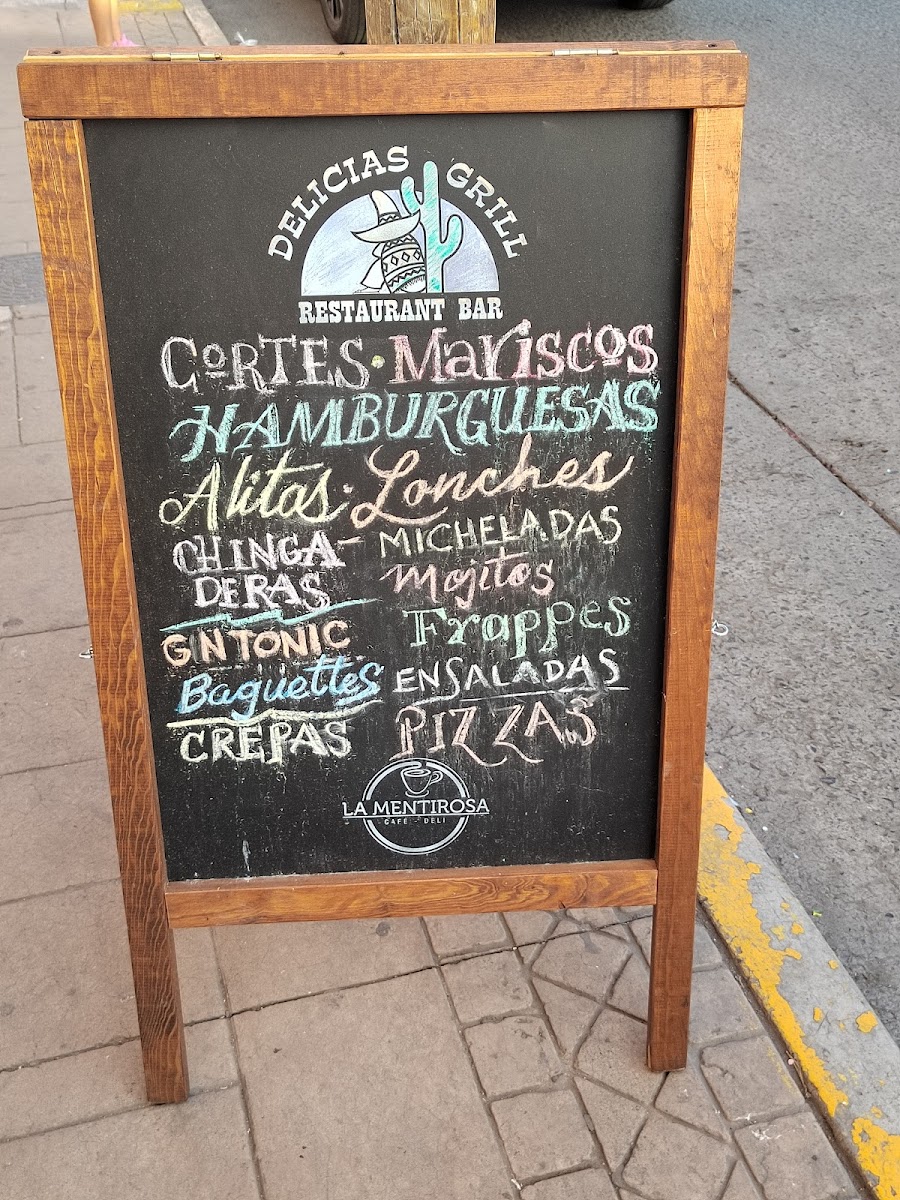 DELICIAS GRILL
RESTAURANT BAR
CORTES · Mariscos
HAMBURGUESAS
Alitas · Lonches
CHINGA-
DERAS
GINTONIC
Baguettes
CREPAS
MICHELADAS
Mojitos
Frappes
ENSALADAS
PIZZAS
LA MENTIROSA
CAFÉ - DELI